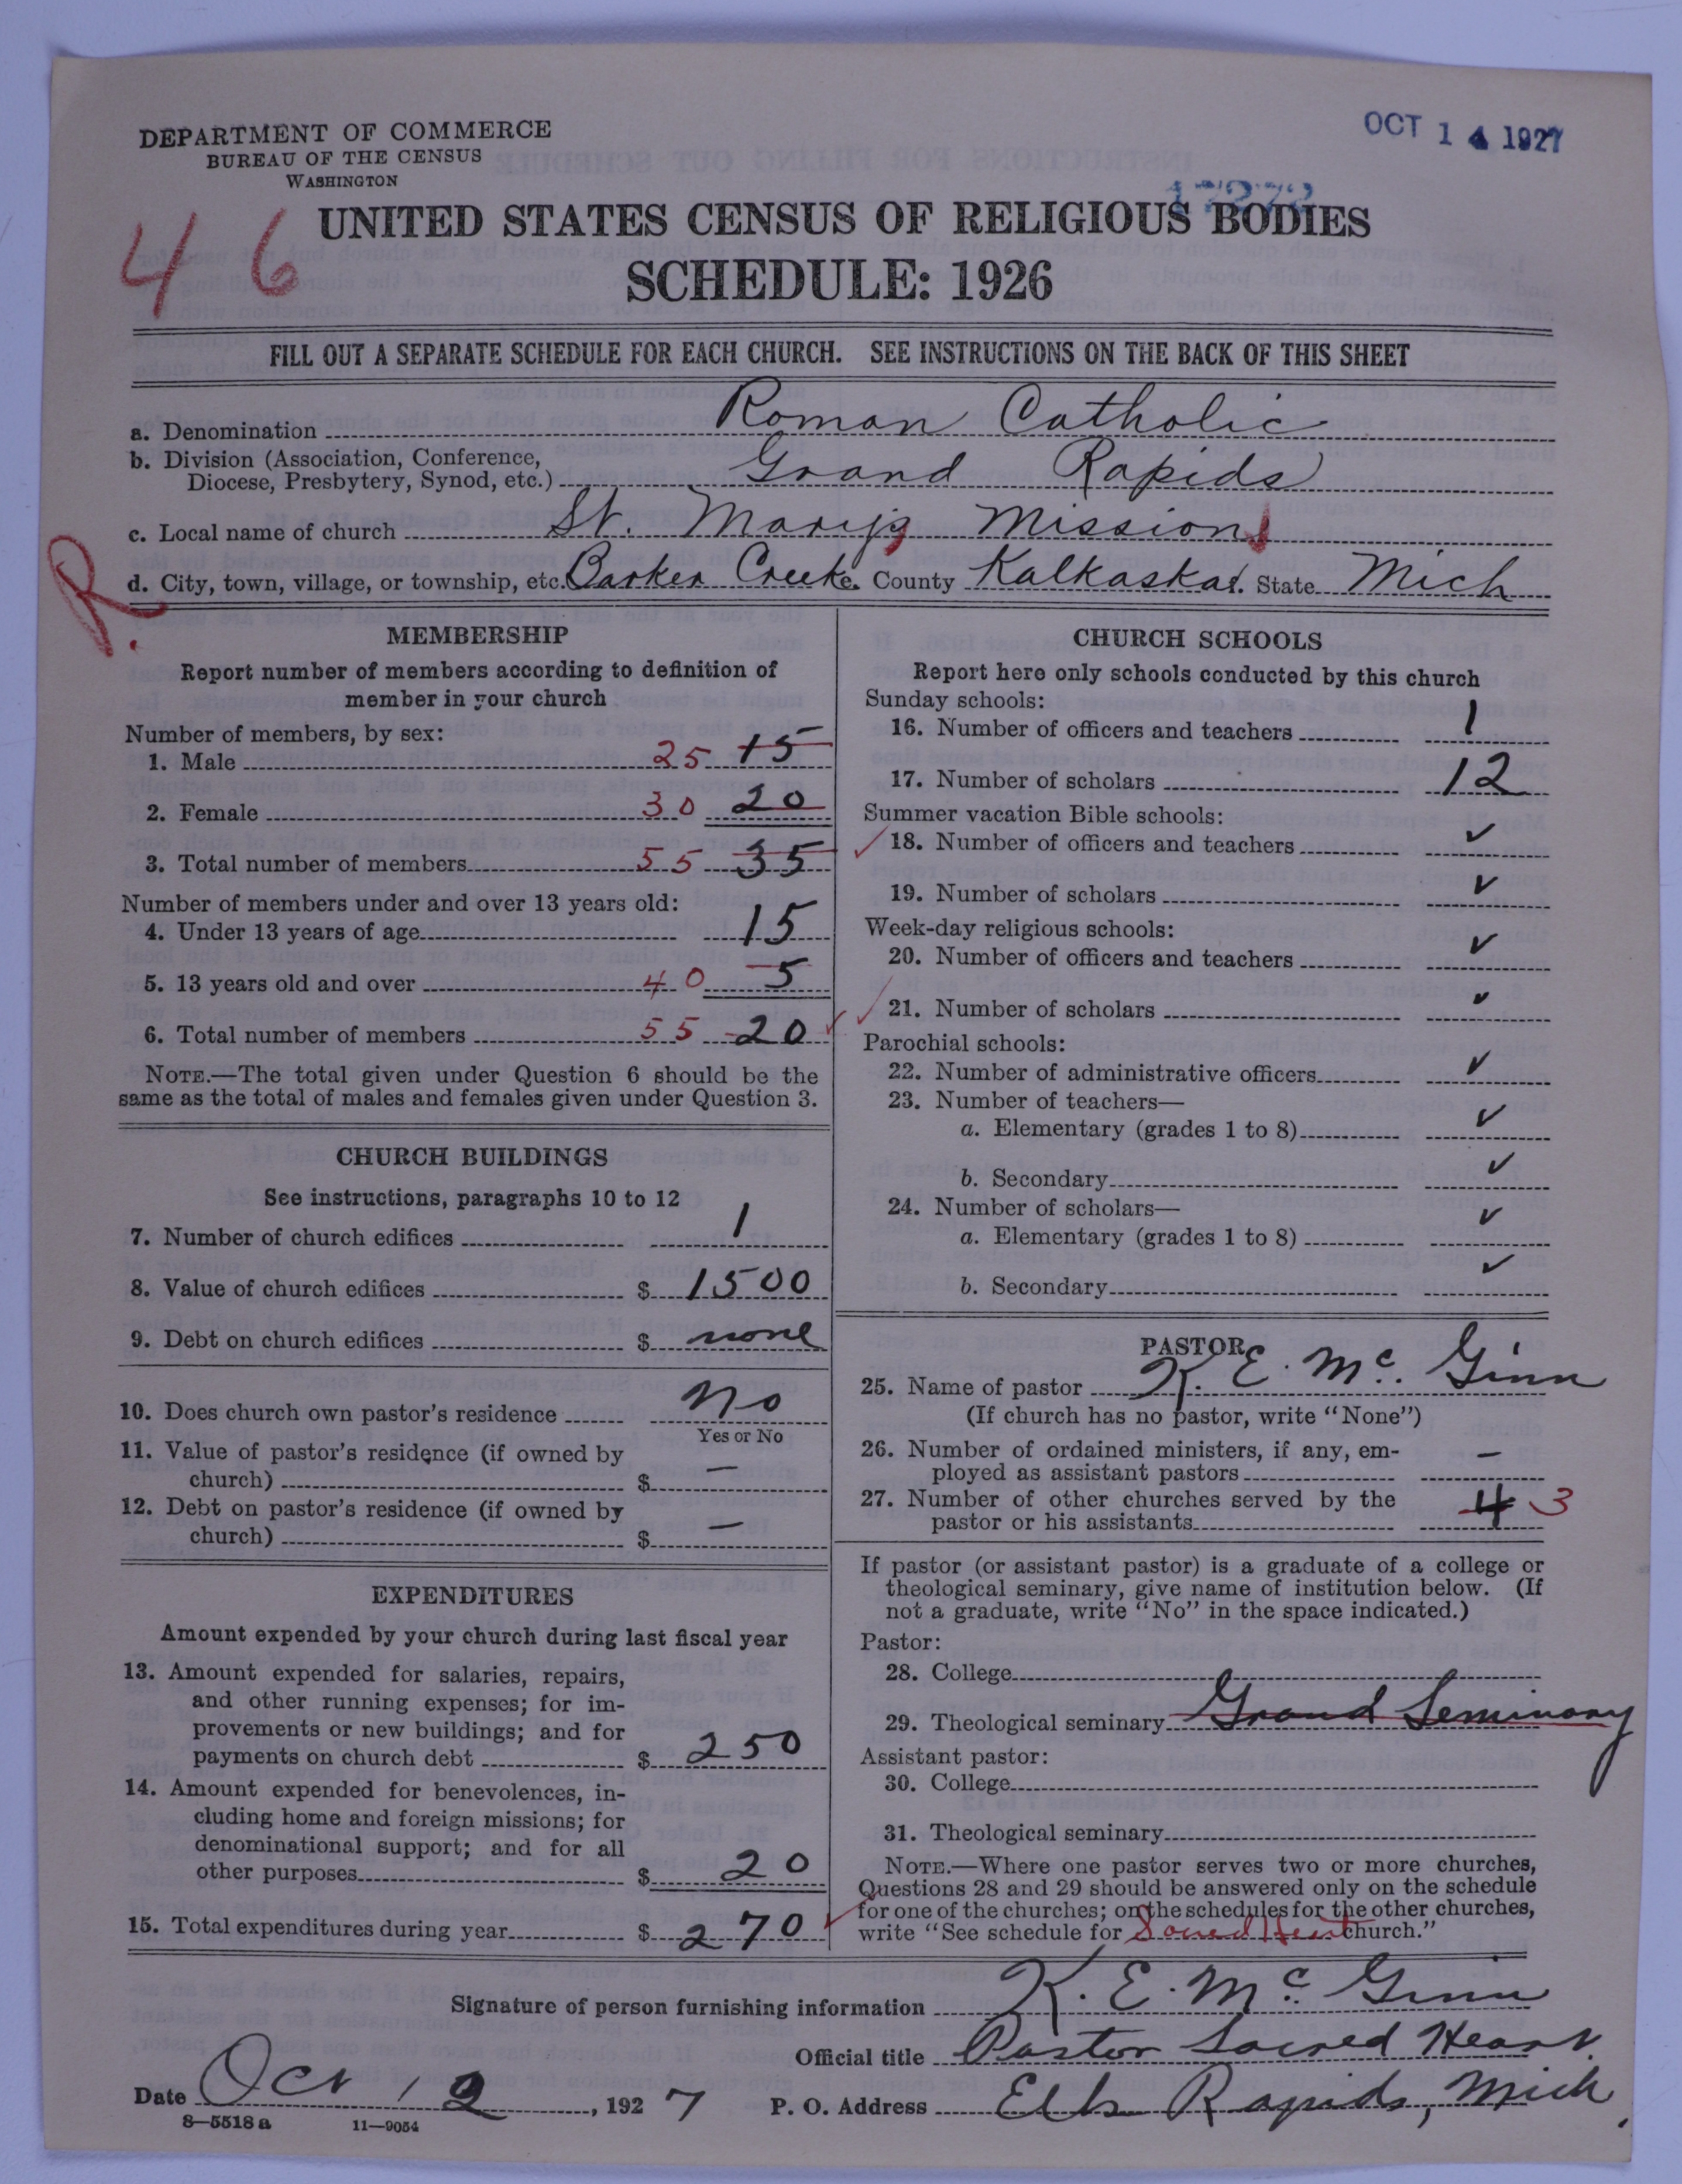 DEPARTMENT OF COMMERCE
BUREAU OF THE CENSUS
WASHINGTON
OCT 14 1927
17272
46
UNITED STATES CENSUS OF RELIGIOUS BODIES
SCHEDULE: 1926
FILL OUT A SEPARATE SCHEDULE FOR EACH CHURCH. SEE INSTRUCTIONS ON THE BACK OF THIS SHEET
a. Denomination Roman Catholic
b. Division (Association, Conference,
Diocese, Presbytery, Synod, etc.) Grand Rapids
c. Local name of church St. Mary's Mission
R.
d. City, town, village, or township, etc. Barker Creeke. County Kalkaska. State Mich
MEMBERSHIP
Report number of members according to definition of
member in your church
Number of members, by sex:
1. Male 25 15
2. Female 30 20
3. Total number of members 55 35
Number of members under and over 13 years old:
4. Under 13 years of age 15
5. 13 years old and over 40 5
6. Total number of members 55 20
NOTE.—The total given under Question 6 should be the
same as the total of males and females given under Question 3.
CHURCH BUILDINGS
See instructions, paragraphs 10 to 12
7. Number of church edifices 1
8. Value of church edifices $ 1500
9. Debt on church edifices $ none
10. Does church own pastor's residence No
Yes or No
11. Value of pastor's residence (if owned by
church) $ —
12. Debt on pastor's residence (if owned by
church) $ —
EXPENDITURES
Amount expended by your church during last fiscal year
13. Amount expended for salaries, repairs,
and other running expenses; for im-
provements or new buildings; and for
payments on church debt $ 250
14. Amount expended for benevolences, in-
cluding home and foreign missions; for
denominational support; and for all
other purposes $ 20
15. Total expenditures during year $ 270
CHURCH SCHOOLS
Report here only schools conducted by this church
Sunday schools:
16. Number of officers and teachers 1
17. Number of scholars 12
Summer vacation Bible schools:
18. Number of officers and teachers ✓
19. Number of scholars ✓
Week-day religious schools:
20. Number of officers and teachers ✓
21. Number of scholars ✓
Parochial schools:
22. Number of administrative officers ✓
23. Number of teachers—
a. Elementary (grades 1 to 8) ✓
b. Secondary ✓
24. Number of scholars—
a. Elementary (grades 1 to 8) ✓
b. Secondary ✓
PASTOR
25. Name of pastor K. E. Mc. Ginn
(If church has no pastor, write "None")
26. Number of ordained ministers, if any, em-
ployed as assistant pastors —
27. Number of other churches served by the
pastor or his assistants 4 3
If pastor (or assistant pastor) is a graduate of a college or
theological seminary, give name of institution below. (If
not a graduate, write "No" in the space indicated.)
Pastor:
28. College
29. Theological seminary Grand Seminary
Assistant pastor:
30. College
31. Theological seminary
NOTE.—Where one pastor serves two or more churches,
Questions 28 and 29 should be answered only on the schedule
for one of the churches; on the schedules for the other churches,
write "See schedule for Sacred Heart church."
Signature of person furnishing information K. E. Mc. Ginn
Official title Pastor Sacred Heart
Date Oct 12, 1927 P. O. Address Elk Rapids, Mich.
8—5518 a 11—9054